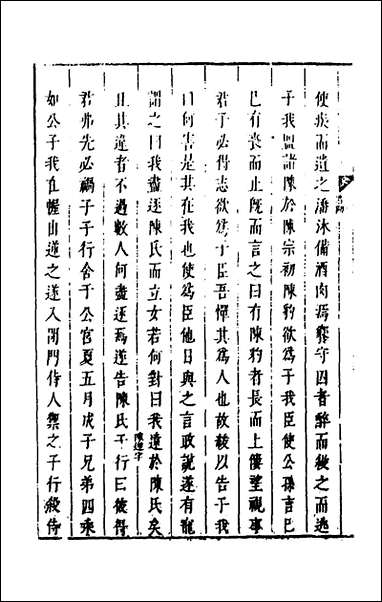 使疾而遺之潘沐備酒肉焉饗守囚者醉而殺之而逃
子我盟諸陳於陳宗初陳豹欲爲子我臣使公孫言己
已有喪而止既而言之曰有陳豹者長而上僂望視事
君子必得志欲爲子臣吾憚其爲人也故緩以告子我
曰何害是其在我也使爲臣他日與之言政說遂有寵
謂之曰我盡逐陳氏而立女若何對曰我遠於陳氏矣
且其違者不過數人何盡逐焉遂告陳氏子行曰彼得
君弗先必禍子子行舍于公宮夏五月成子兄弟四乘
如公子我在幄出逆之遂入閉門侍人禦之子行殺侍